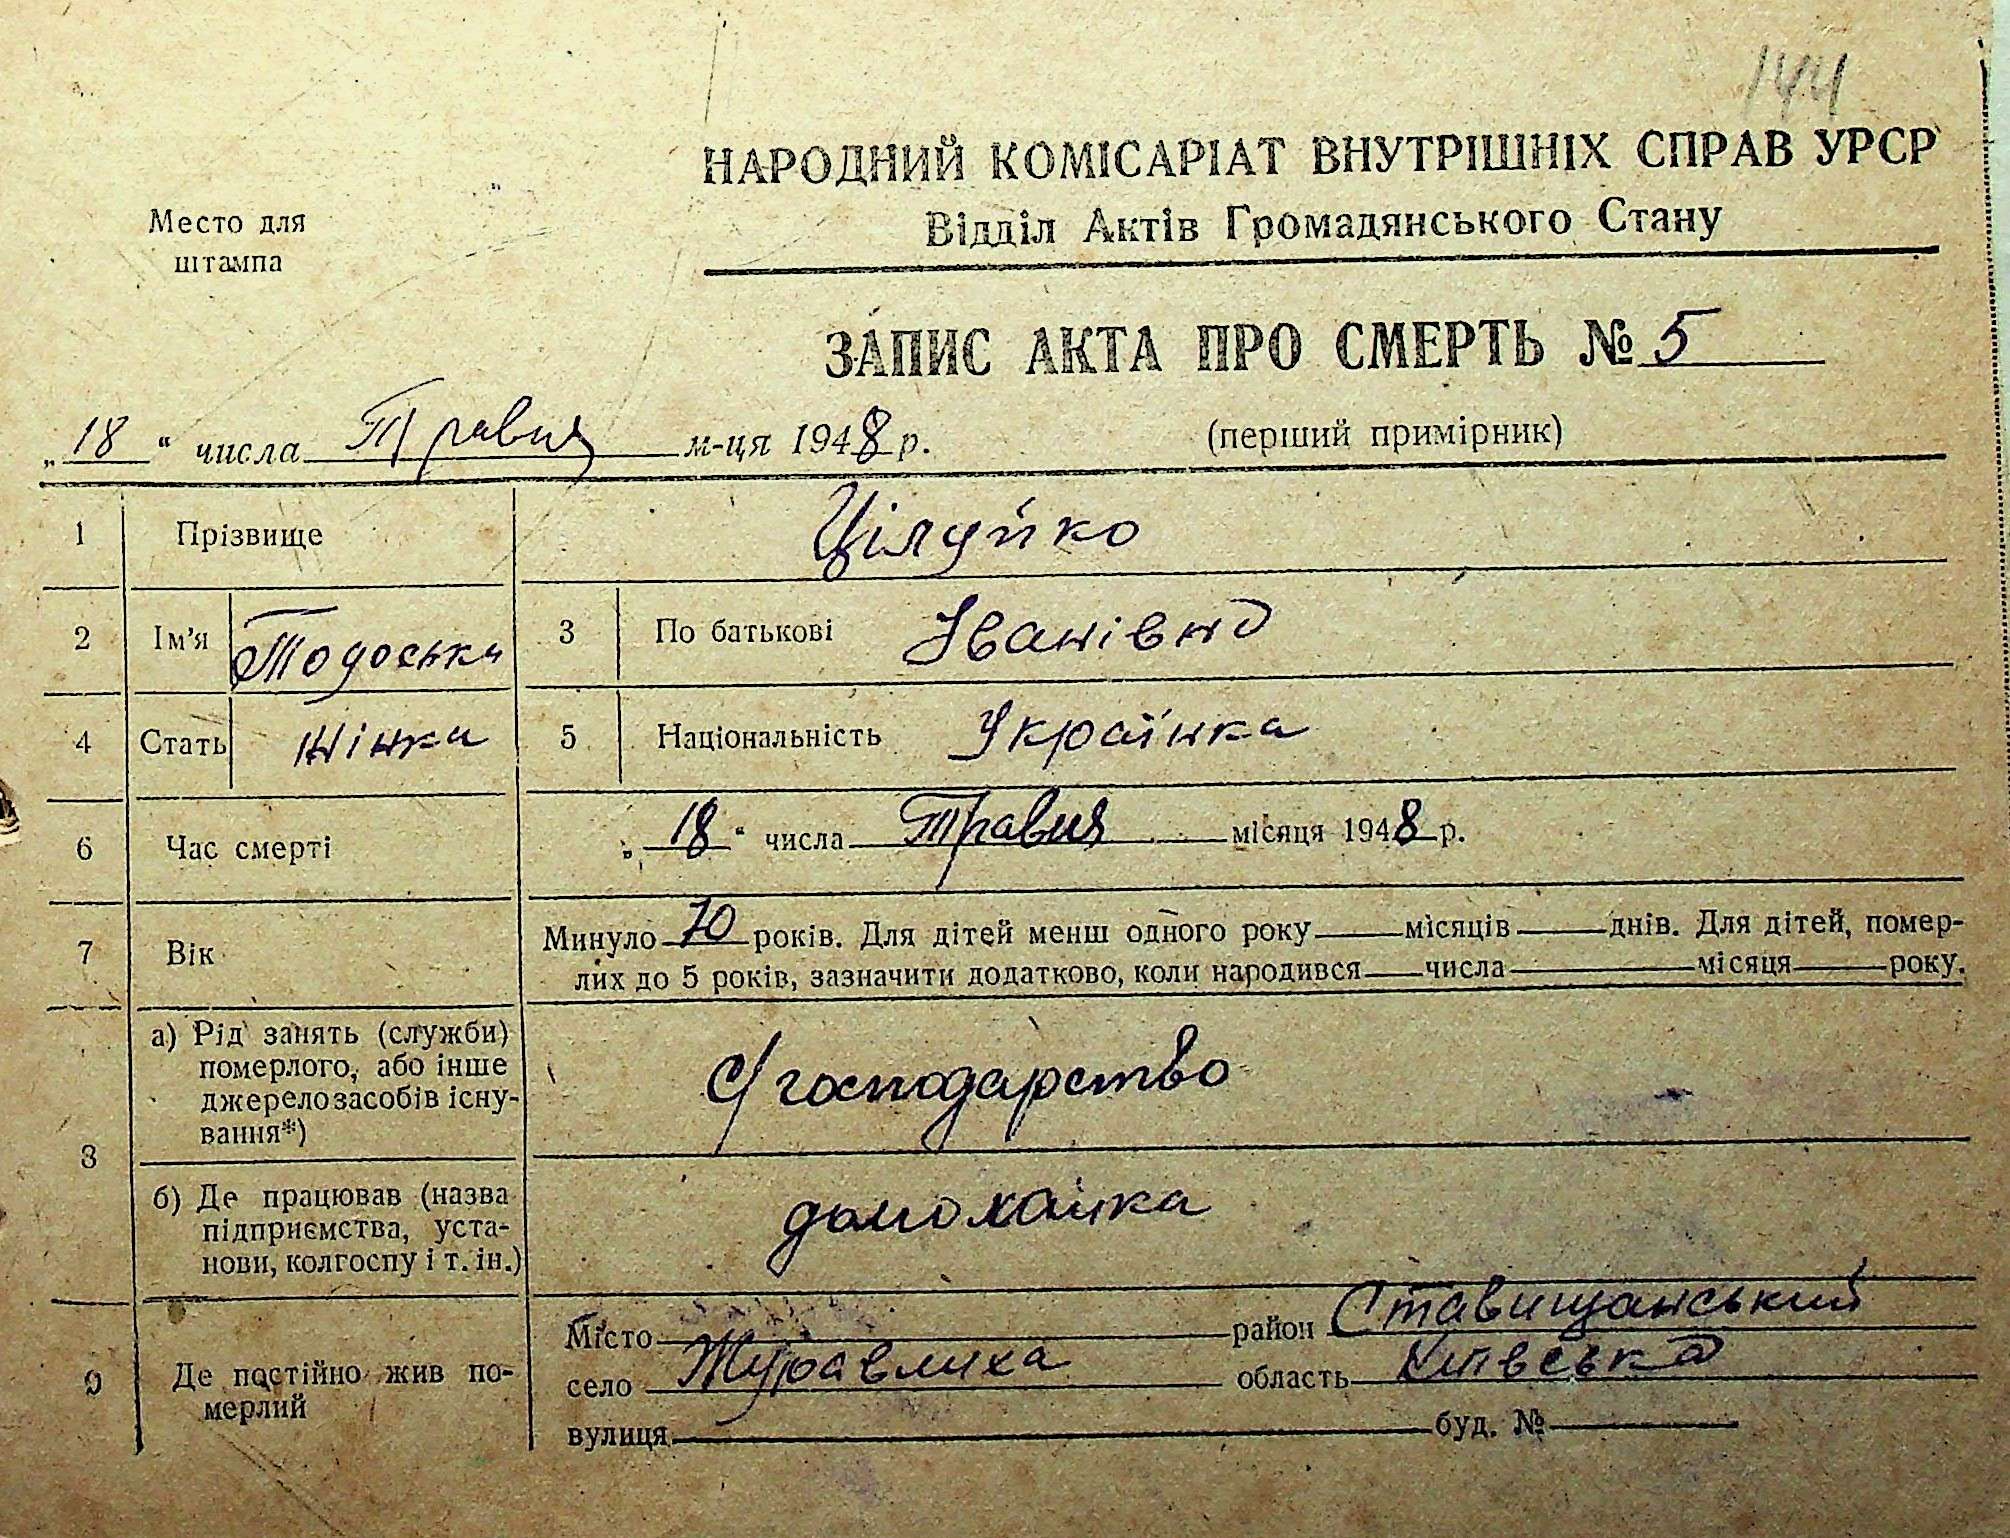 144
НАРОДНИЙ КОМІСАРІАТ ВНУТРІШНІХ СПРАВ УРСР
Відділ Актів Громадянського Стану
Место для
штампа
ЗАПИС АКТА ПРО СМЕРТЬ № 5
„18“ числа Травня м-ця 1948 р. (перший примірник)
1 Прізвище Цілуйко
2 Ім'я Тодоська 3 По батькові Іванівна
4 Стать жінка 5 Національність Українка
6 Час смерті „18“ числа Травня місяця 1948 р.
7 Вік Минуло 70 років. Для дітей менш одного року місяців днів. Для дітей, помер-
лих до 5 років, зазначити додатково, коли народився числа місяця року.
8 а) Рід занять (служби)
померлого, або інше
джерело засобів існу-
вання*)
с/господарство
б) Де працював (назва
підприємства, уста-
нови, колгоспу і т. ін.)
домохайка
9 Де постійно жив по-
мерлий
Місто район Ставищанський
село Журавлиха область Київська
вулиця буд. №